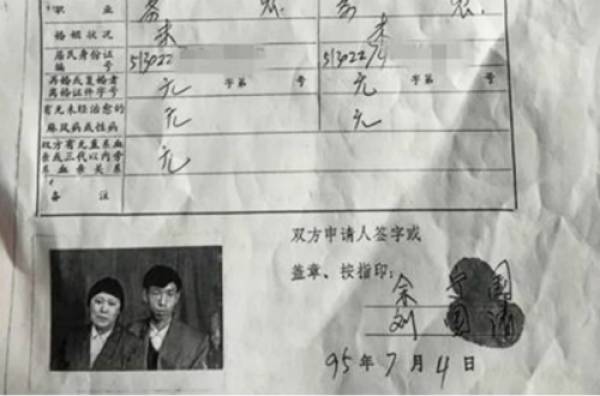 职业 务农 务农
婚姻状况 未 未
居民身份证编号 513022 513022
再婚或复婚者离婚证件字号 无 字第 号 无 字第 号
有无未经治愈的麻风病或性病 无 无
双方有无直系血亲或三代以内旁系血亲关系 无
备注
双方申请人签字或
盖章、按指印:
余 国
刘
95年7月4日